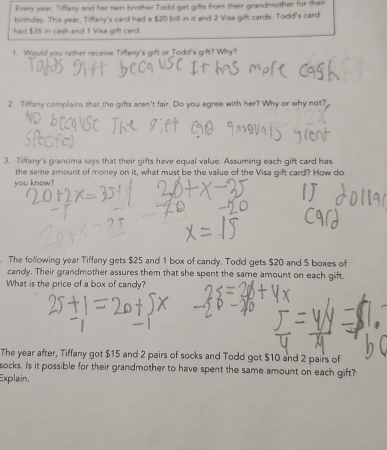 Every year, Tiffany and her twin brother Todd get gifts from their grandmother for their
birthday. This year, Tiffany's card had a $20 bill in it and 2 Visa gift cards. Todd's card
had $35 in cash and 1 Visa gift card.
1. Would you rather receive Tiffany's gift or Todd's gift? Why?
Todds gift because It has more cash
2. Tiffany complains that the gifts aren't fair. Do you agree with her? Why or why not?
NO because The gift card amounts
3. Tiffany's grandma says that their gifts have equal value. Assuming each gift card has
the same amount of money on it, what must be the value of the Visa gift card? How do
you know?
20+2x=35+1 20+x-35 15 dollar
-20 -20 card
x=15
The following year Tiffany gets $25 and 1 box of candy. Todd gets $20 and 5 boxes of
candy. Their grandmother assures them that she spent the same amount on each gift.
What is the price of a box of candy?
25+1=20+5x 25=20+4x
-1 -1 -20 -20
5/4=4/4=$1.
The year after, Tiffany got $15 and 2 pairs of socks and Todd got $10 and 2 pairs of
socks. Is it possible for their grandmother to have spent the same amount on each gift?
Explain.